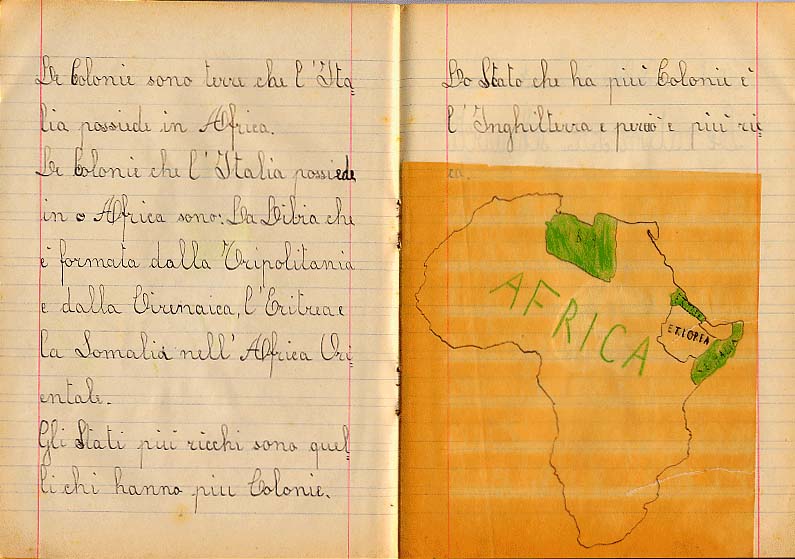 Le Colonie sono terre che l'Ita=
lia possiede in Africa.
Le Colonie che l'Italia possiede
in Africa sono: La Libia che
è formata dalla Tripolitania
e dalla Cirenaica, l'Eritrea e
la Somalia nell'Africa Ori=
entale.
Gli Stati più ricchi sono quel=
li chi hanno più Colonie.
Lo Stato che ha più Colonie è
l'Inghilterra e perciò è più ric=
ca.
AFRICA
ERITREA
ETIOPIA
SOMALIA